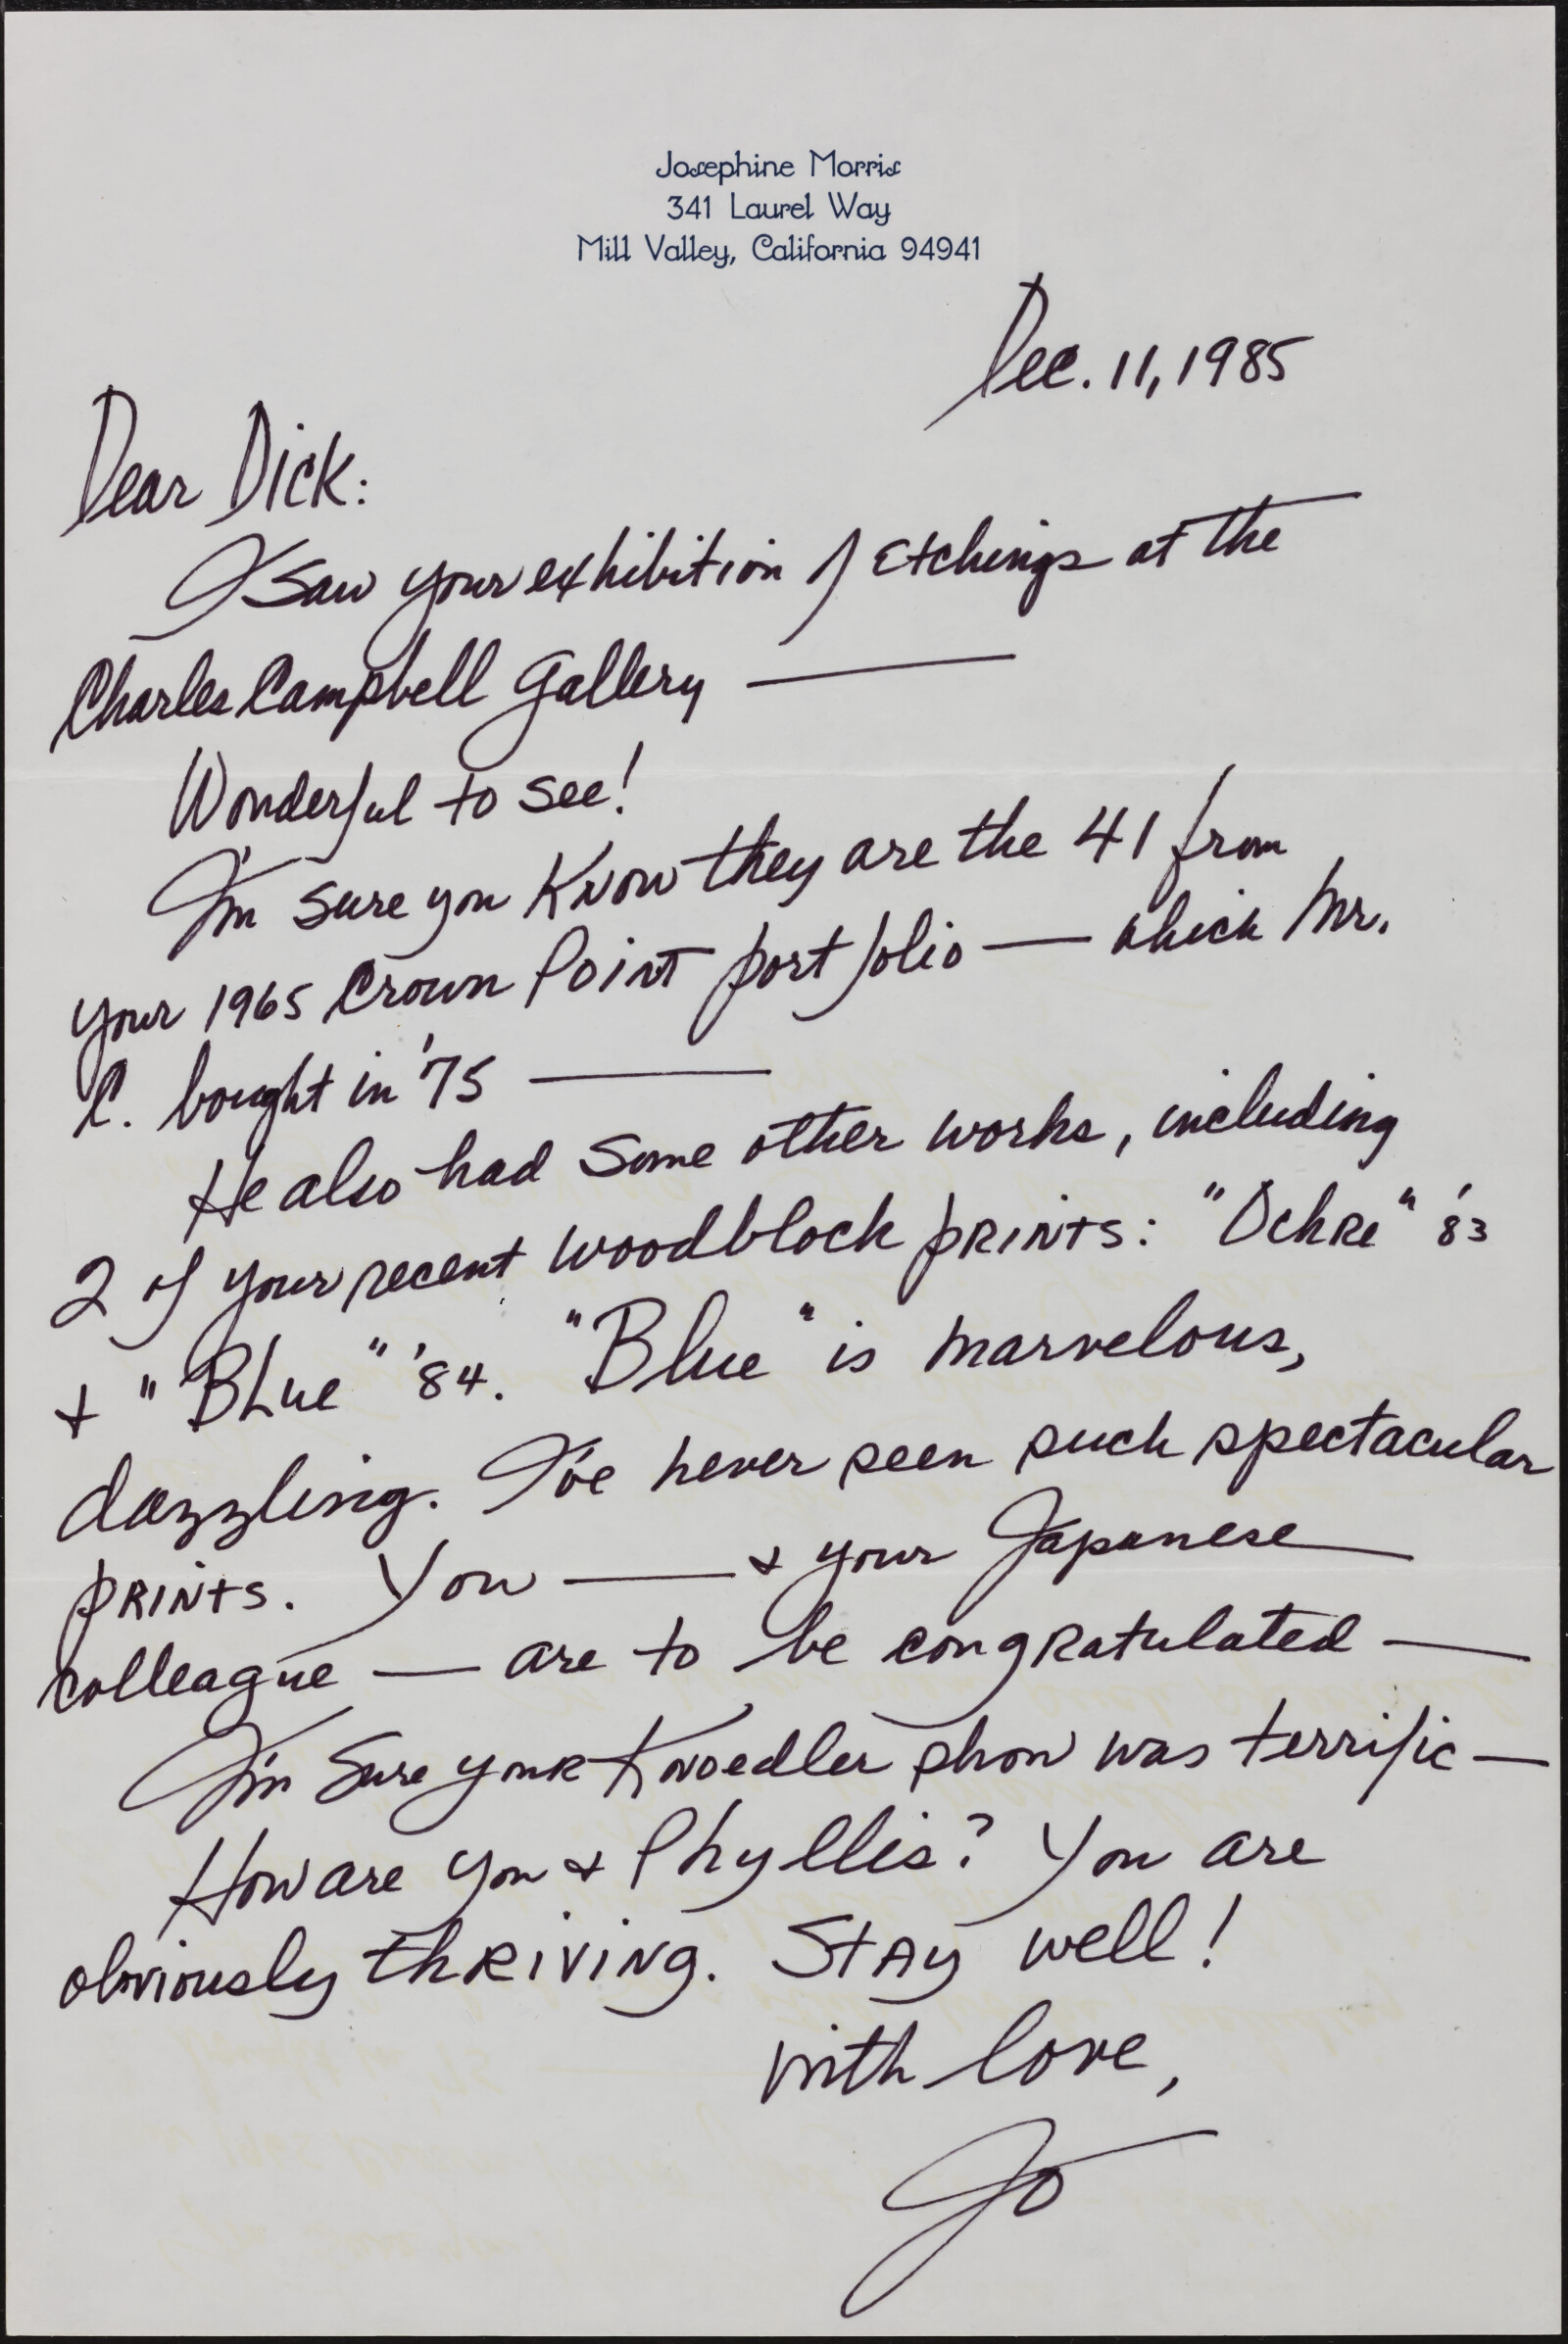 Josephine Morris
341 Laurel Way
Mill Valley, California 94941
Dec. 11, 1985
Dear Dick:
I saw your exhibition of etchings at the
Charles Campbell Gallery —
Wonderful to see!
I'm sure you know they are the 41 from
your 1965 Crown Point portfolio — which Mr.
C. bought in '75 —
He also had some other works, including
2 of your recent woodblock prints: "Ochre" '83
+ "Blue" '84. "Blue" is marvelous,
dazzling. I've never seen such spectacular
prints. You — + your Japanese
colleague — are to be congratulated —
I'm sure your Knoedler show was terrific —
How are you + Phyllis? You are
obviously thriving. Stay well!
with love,
Jo